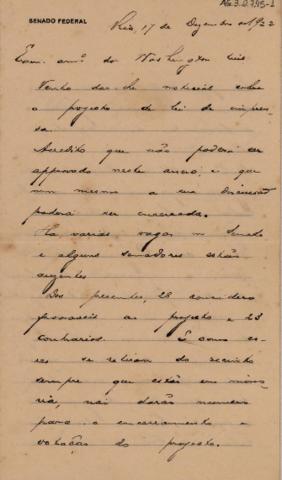 AG.3.0.7.45-1
SENADO FEDERAL
Rio, 17 de Dezembro de 1922
Exm. amº. dr Washington Luis
Venho dar-lhe noticias sobre
o projecto de lei de impren
sa.
Acredito que não poderá ser
approvado neste anno, e que
nem mesmo a sua discussão
poderá ser encerrada.
Ha varias vagas no Senado
e alguns senadores estão
ausentes.
Dos presentes, 28 considero
favoraveis ao projecto e 23
contrarios. E como es-
tes se retiram do recinto
sempre que estão em mino
ria, não darão numero
para o encerramento e
votação do projecto.